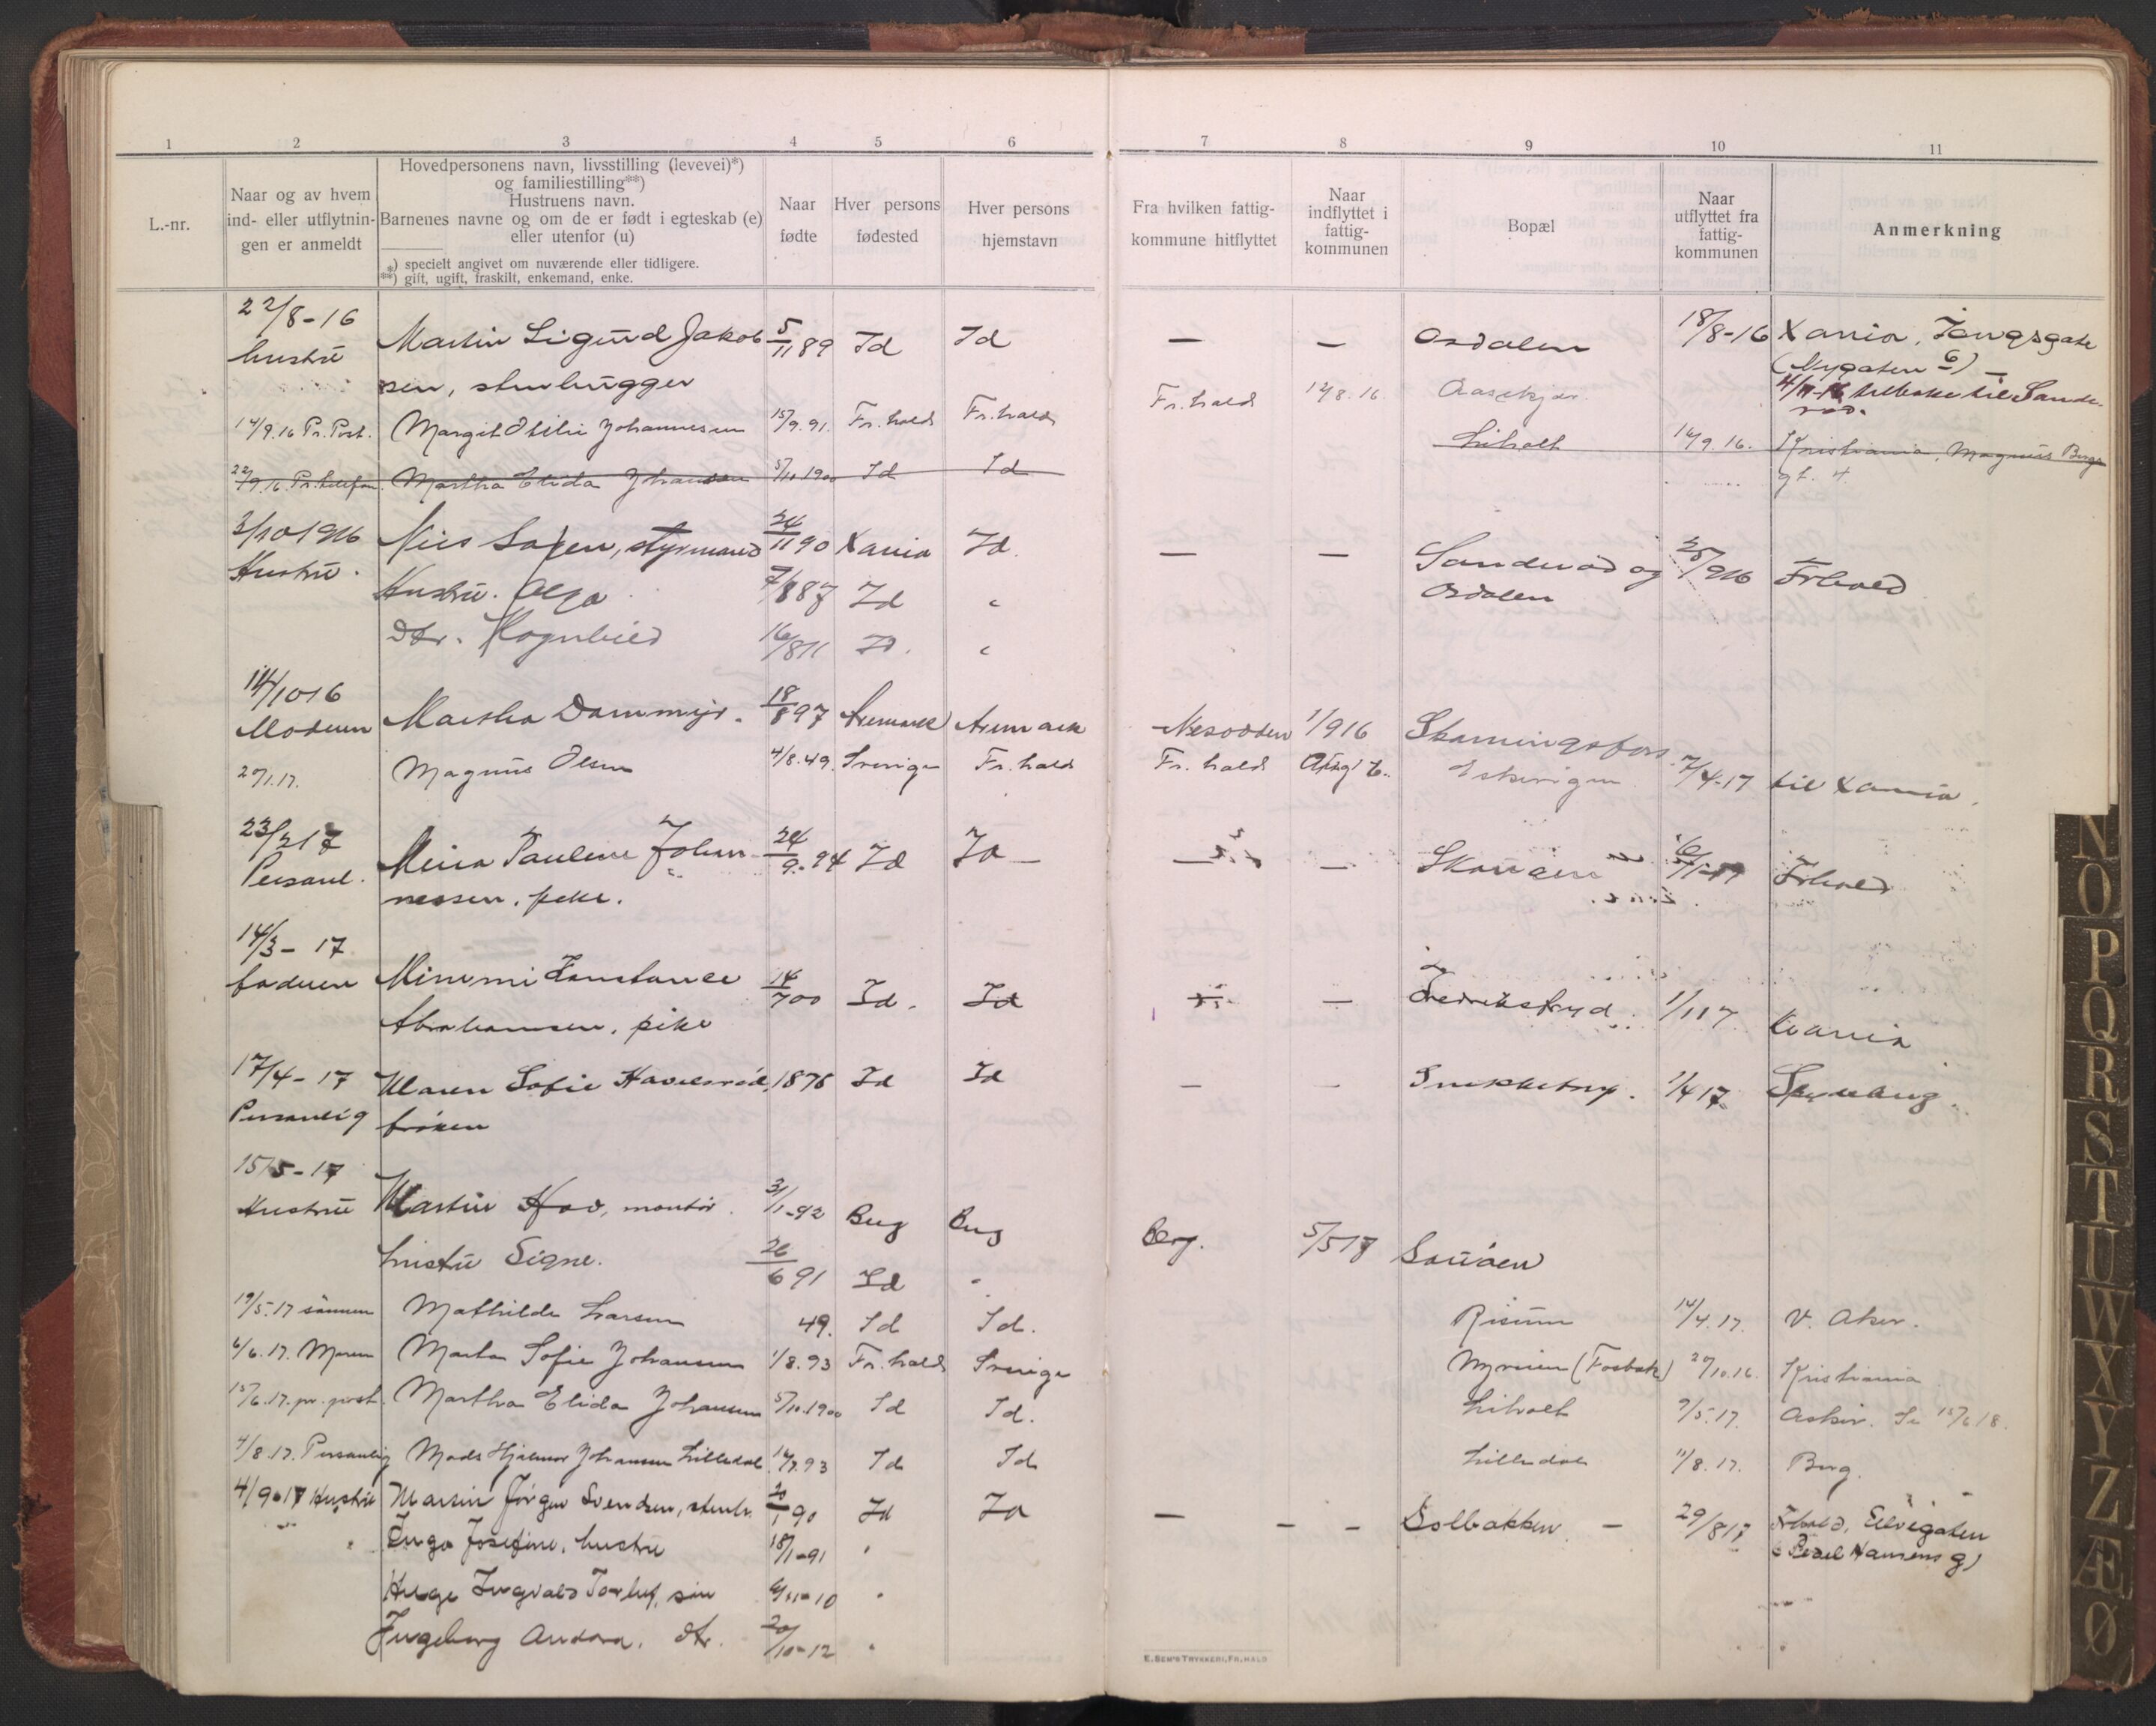 1 2 3 4 5 6 7 8 9 10 11
L.-nr.
Naar og av hvem
ind- eller utflytnin-
gen er anmeldt
Hovedpersonens navn, livsstilling (levevei)*)
og familiestilling**)
Hustruens navn.
Barnenes navne og om de er født i egteskab (e)
eller utenfor (u)
*) specielt angivet om nuværende eller tidligere.
**) gift, ugift, fraskilt, enkemand, enke.
Naar
fødte
Hver persons
fødested
Hver persons
hjemstavn
Fra hvilken fattig-
kommune hitflyttet
Naar
indflyttet i
fattig-
kommunen
Bopæl
Naar
utflyttet fra
fattig-
kommunen
Anmerkning
22/8-16
hustru Martin Sigurd Jakob 5/11 89 Id Id — — Osdalen 18/8-16 Xania,
(Nygaten 6)
sen, stenhugger
14/9.16 Pr. Post. Margit Otilie Johannesen 15/9.91. Fr.hald Fr.hald Fr.hald 12/8.16.
22/9.16 Pr. telefon Martha Elida Johansen 5/10 1900 Id Id Liholt 16/9.16. Kristiania, Magnus Bergs
gt. 4
3/10 1916 Nils styrmand 24/11 90 Xania Id. — — Sanderød og Frhald
Hustru. Hustru. Olga 7/8 87 Id " Osdalen
Dtr. Ragnhild 16/8 11 Id. "
14/10 16
Moderen Martha Dammyr. 18/8 97 Aremark Aremark Nesodden 1/9 16 Skaningsfoss
20/1.17. Magnus Olsen 4/8.49. Sverige Fr.hald Fr.hald 7/4-17 til Xania.
23/2 17
Personl. Paulene Johan 24/9-94 Id Id — — Frhald
nessen, pike.
14/3-17
faderen Mimmi Konstance 14/7 00 Id. Id — Fredriksfryd 1/1 17 Kvania
Abrahamsen, pike
17/4-17 Maren Sofie 1876 Id Id — — 1/4 17 Spydeberg.
Personlig frøken
15/5-17
Hustru Martin montør. 3/1-92 Berg Berg Berg. 5/5 17
hustru Signe. 26/6 91 Id "
19/5.17 sønnen Mathilde Larsen 49. Id Id. Risum 14/4.17. V. Aker.
6/6.17. Moren Marta Sofie Johansen 1/8.93 Fr.hald Sverige (Fosbæk) 20/10.16. Kristiania
15/6.17. pr. post. Martha Elida Johansen 5/10.1900 Id Id. Liholt 9/5.17. Asker. Se 15/6 18.
4/8.17. Personlig Mads Hjalmar Johansen Lilledal 93 Id Id Lilledal 11/8.17. Berg.
4/9-17 Hustru Martin Jørgen Svendsen, stenh. 90 Id Id — — — Solbakken — 29/8 17 Frhald,
Inga Josefine, hustru 18/1-91 "
Helge Ingvald son "
Ingeborg dtr. 20/10-12 "
E. SEM'S TRYKKERI, FR.HALD
N
O
P
Q
R
S
T
U
W
X
Y
Z
Æ
Ø